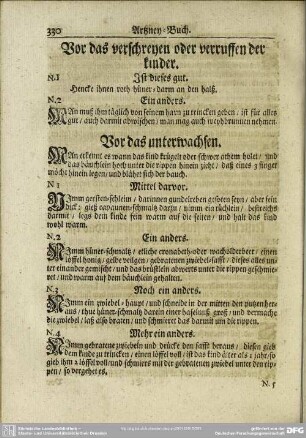 330 Artzney-Buch.
Vor das verschreyen oder verruffen der
kinder.
N.1 Ist dieses gut.
Hencke ihnen roth hüner/ darm an den halß.
N.2 Ein anders.
MAn muß ihm täglich von seinem harn zu trincken geben/ ist für alles
gut/ auch darmit abwischen/ man mag auch weyhbrunnen nemen.
Vor das unterwachsen.
MAn erkennt es wann das kind krügelt oder schwer athem holet/ und
das bäuchlein hoch unter die rippen hinein ziehr/ daß eines 3 finger
möcht hinein legen/ und blähet sich der bauch.
N 1 Mittel darvor.
NImm gersten-schleim/ darinnen gundelreben gesoten seyn/ aber sein
dick/ gieß capaunen-schmaltz darzu/ nimm ein tüchlein/ bestreichs
darmit/ legs dem kinde sein warm auf die seiten/ und halt das kind
wohl warm.
N.2 Ein anders.
NImm hüner-schmaltz/ etliche cronabeth-oder wacholderbeer/ einen
löffel honig/ gelbe veilgen/ gebratenen zwiebel-safft/ dieses alles un-
ter einander gemischt/ und das brüstlein abwerts unter die rippen geschmie-
ret/ und warm auf dem bäuchlein gehalten.
N.3 Noch ein anders.
NImm ein zwiebel-haupt/ und schneide in der mitten den putzen her-
aus/ thue hüner-schmaltz darein einer haselnuß groß/ und vermache
die zwiebel/ laß also braten/ und schmieret das darmit um die rippen.
N.4 Mehr ein anders.
NImm gebratene zwiebeln und drücke den safft heraus/ diesen gieb
dem kinde zu trincken/ einen löffel voll/ ist das kind älter als 1 jahr/ so
gieb ihm 2 löffel voll/ und schmiers mit der gebratenen zwiebel unter den rip-
pen/ so vergehet es.
N. 5